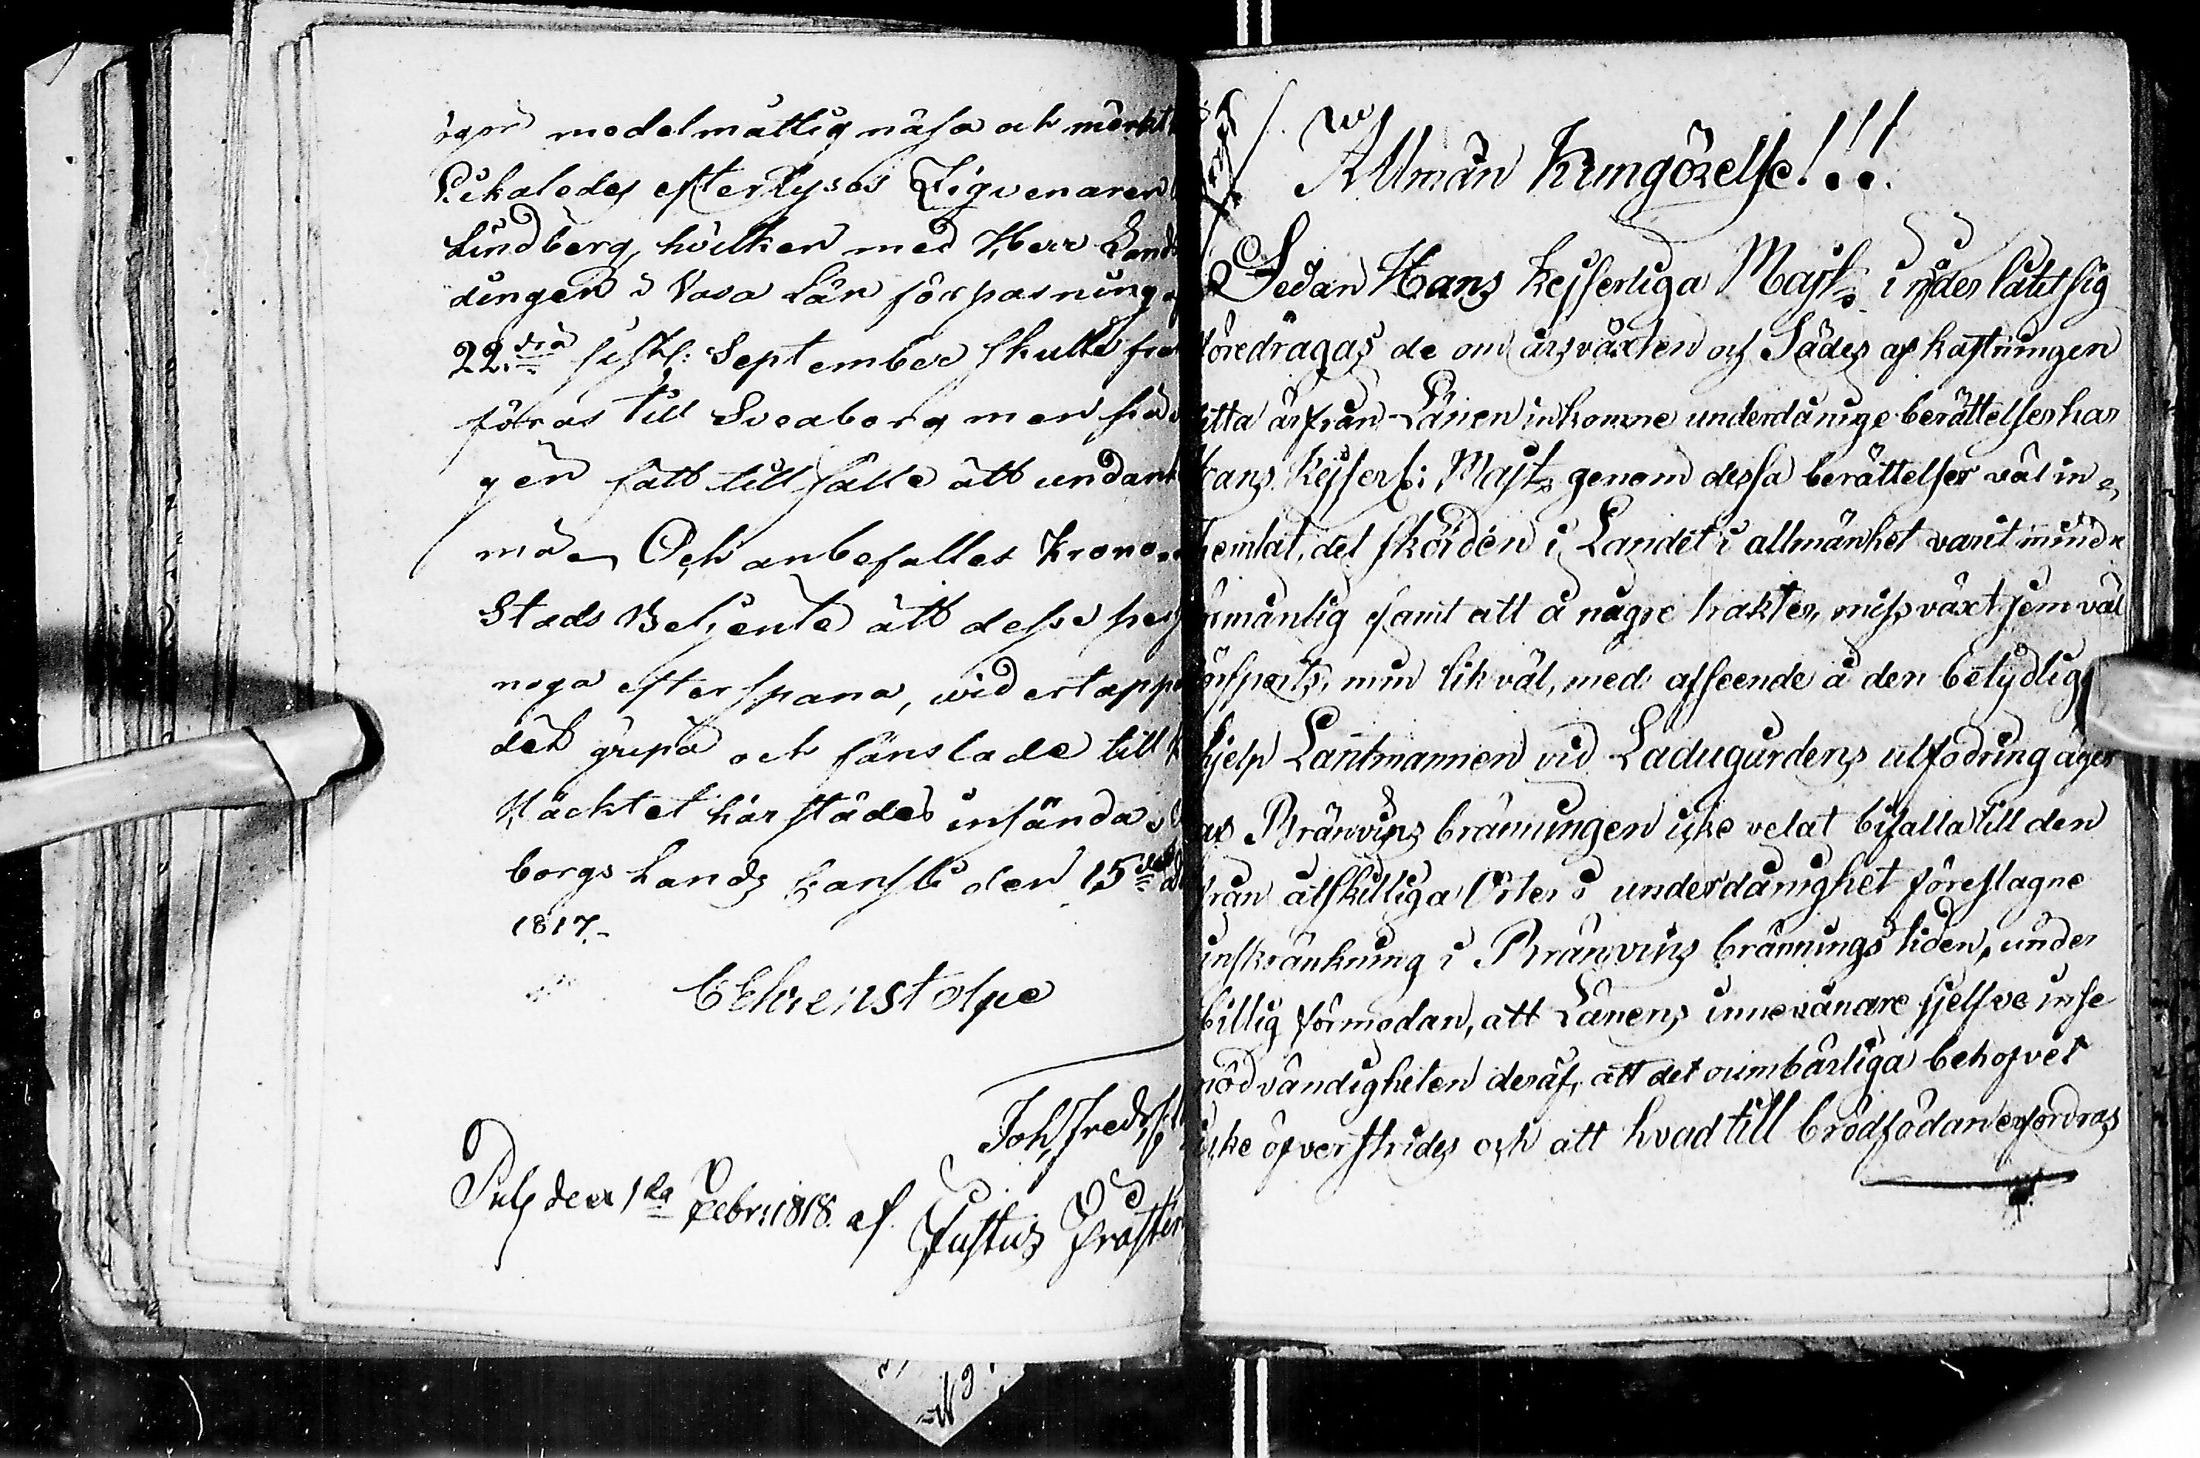 ögon medelmåttig näsa och mörkt
Likaledes efterlyses Zigenaren
Lindberg, hvilken med Herr Lands
dingen i Vasa Län förpasning
22.dra sistl: September skulle fra
föras till Sveaborg men frå
gen fått tillfälle att undank
ma Och anbefalles Krono
Stads Betjente att desse per
noga efterspana, vid ertappa
det gripa och fänslade till
Häcktet härstädes insända
borgs Lands Cansli den 15de
1817.
C Ehrenstolpe
Joh, Fredr,
Pulß den 1da Febr: 1818. af Justus Frosten
Allmän Kungörelse!!!
Sedan Hans Kejserliga Majst: i nåder låtit sig
föredragas de om årsväxten och Sädes afkastningen
detta år från Länen inkomne underdånige berättelser har
Hans Kejserl: Majst genom dessa berättelser väl in
hemtat, det skörden i Landet i allmänhet varit mindre
ymnig samt att å någre trakter, missväxt jemväl
försports, men likväl, med afseende å den betydlig
hjelp Lantmannen vid Ladugårdens utfodring äger
af Bränvins bränningen icke velat bifalla till den
från åtskilliga Orter i underdånighet föreslagne
inskränkning i Bränvins brännings tiden, under
billig förmodan, att Länens innevånare sjelfve inse
nödvändigheten deraf, att det oumbärliga behofvet
icke öfverskrides och att hvad till brödfödan erfordras